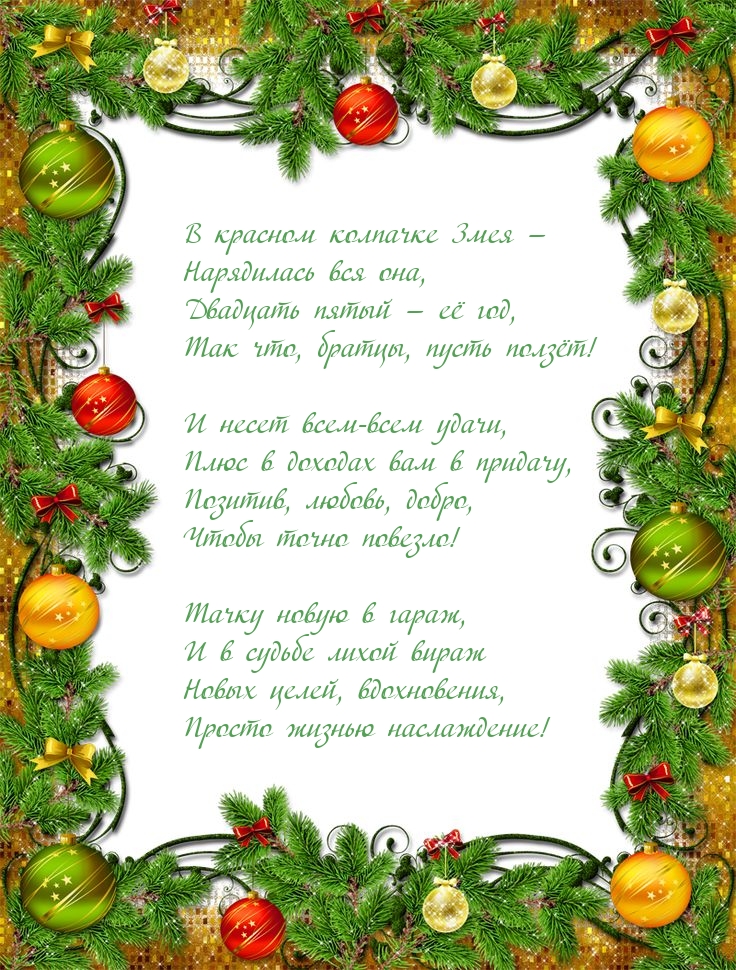 В красном колпачке Змея –
Нарядилась вся она,
Двадцать пятый – её год,
Так что, братцы, пусть ползёт!
И несет всем-всем удачи,
Плюс в доходах вам в придачу,
Позитив, любовь, добро,
Чтобы точно повезло!
Тачку новую в гараж,
И в судьбе лихой вираж
Новых целей, вдохновения,
Просто жизнью наслаждение!